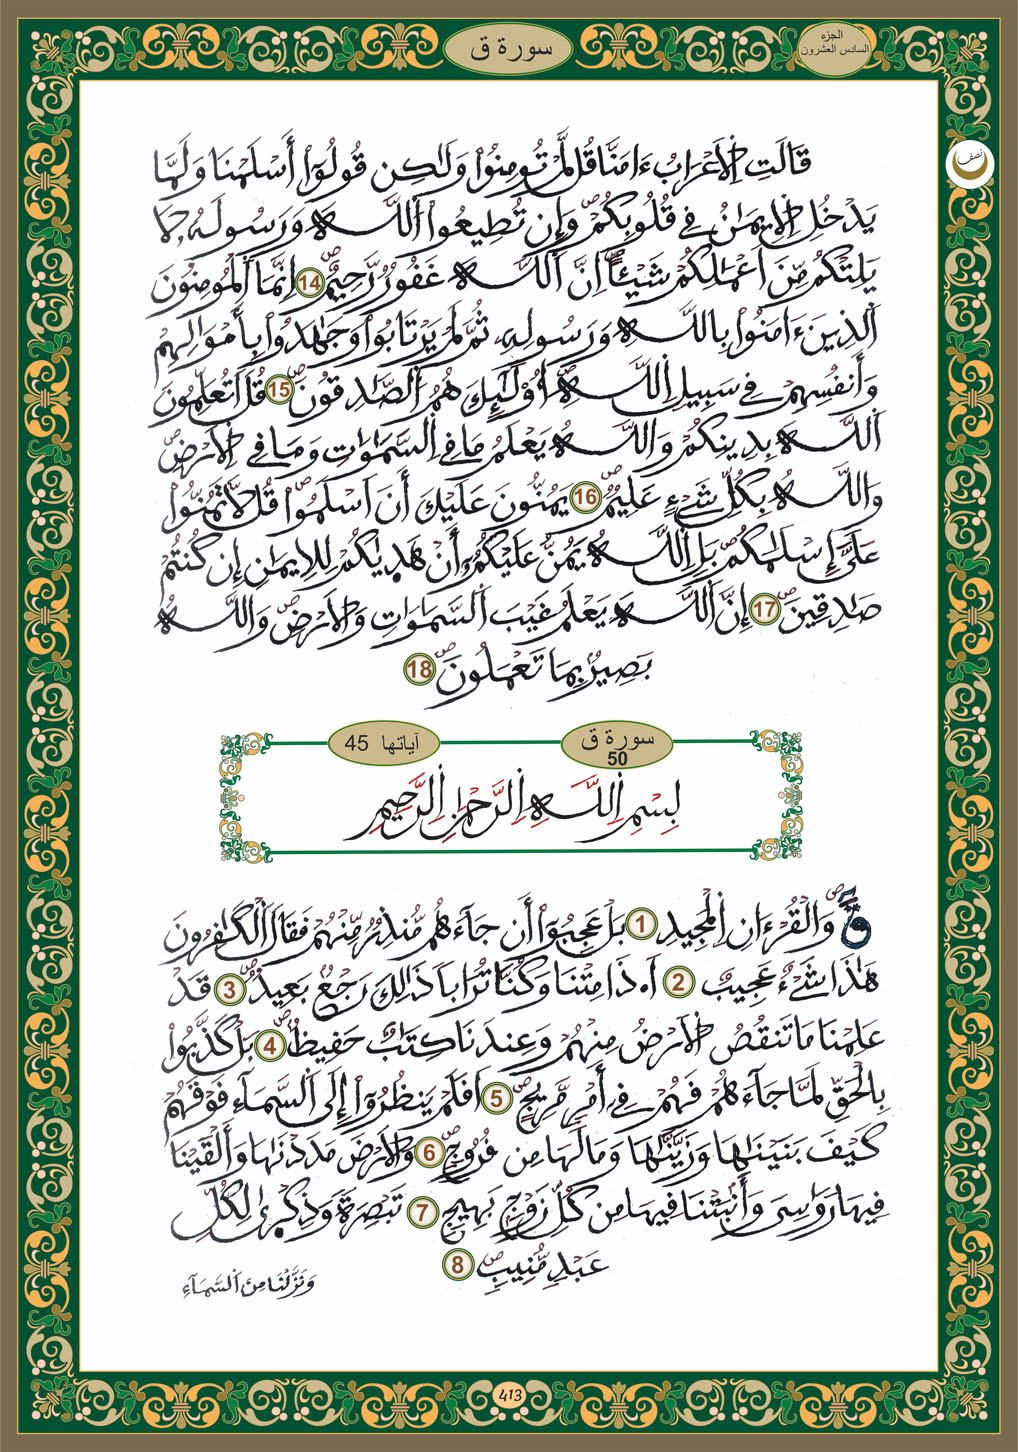 سورة ق
الجزء
السادس العشرون
نصف
قَالَتِ اِ۬لَاعْرَابُ ءَامَنَّا قُل لَّمْ تُومِنُوا۟ وَلَٰكِن قُولُوٓا۟ أَسْلَمْنَا وَلَمَّا
يَدْخُلِ اِ۬لِايمَٰنُ فِے قُلُوبِكُمْ وَإِن تُطِيعُوا۟ اُ۬للَّهَ وَرَسُولَهُۥ لَا
يَلِتْكُم مِّنَ اَعْمَٰلِكُمْ شَيْـًٔا اِنَّ اَ۬للَّهَ غَفُورٌ رَّحِيمٌ 14 اِنَّمَا اَ۬لْمُومِنُونَ
اَ۬لذِينَ ءَامَنُوا۟ بِاللَّهِ وَرَسُولِهِۦ ثُمَّ لَمْ يَرْتَابُوا۟ وَجَٰهَدُوا۟ بِأَمْوَٰلِهِمْ
وَأَنفُسِهِمْ فِے سَبِيلِ اِ۬للَّهِ أُو۟لَٰٓئِكَ هُمُ اُ۬لصَّٰدِقُونَ 15 قُلَ اَتُعَلِّمُونَ
اَ۬للَّهَ بِدِينِكُمْ وَاللَّهُ يَعْلَمُ مَا فِے اِ۬لسَّمَٰوَٰتِ وَمَا فِے اِ۬لَارْضِ
وَاللَّهُ بِكُلِّ شَےْءٍ عَلِيمٌ 16 يَمُنُّونَ عَلَيْكَ أَنَ اَسْلَمُوا۟ قُل لَّا تَمُنُّوا۟
عَلَيَّ إِسْلَٰمَكُم بَلِ اِ۬للَّهُ يَمُنُّ عَلَيْكُمُۥٓ أَنْ هَدَيٰكُمْ لِلِايمَٰنِ إِن كُنتُمْ
صَٰدِقِينَ 17 إِنَّ اَ۬للَّهَ يَعْلَمُ غَيْبَ اَ۬لسَّمَٰوَٰتِ وَالَارْضِ وَاللَّهُ
بَصِيرٌ بِمَا تَعْمَلُونَ 18
سورة ق
50
آياتها 45
بِسْمِ اِ۬للَّهِ اِ۬لرَّحْمَٰنِ اِ۬لرَّحِيمِ
قٓ وَالْقُرْءَانِ اِ۬لْمَجِيدِ 1 بَلْ عَجِبُوٓا۟ أَن جَآءَهُم مُّنذِرٌ مِّنْهُمْ فَقَالَ اَ۬لْكَٰفِرُونَ
هَٰذَا شَےْءٌ عَجِيبٌ 2 أَ.ذَا مِتْنَا وَكُنَّا تُرَابًا ذَٰلِكَ رَجْعٌ بَعِيدٌ 3 قَدْ
عَلِمْنَا مَا تَنقُصُ اُ۬لَارْضُ مِنْهُمْ وَعِندَنَا كِتَٰبٌ حَفِيظٌ 4 بَلْ كَذَّبُوا۟
بِالْحَقِّ لَمَّا جَآءَهُمْ فَهُمْ فِےٓ أَمْرٍ مَّرِيجٍ 5 اَفَلَمْ يَنظُرُوٓا۟ إِلَى اَ۬لسَّمَآءِ فَوْقَهُمْ
كَيْفَ بَنَيْنَٰهَا وَزَيَّنَّٰهَا وَمَا لَهَا مِن فُرُوجٍ 6 وَالَارْضَ مَدَدْنَٰهَا وَأَلْقَيْنَا
فِيهَا رَوَٰسِيَ وَأَنۢبَتْنَا فِيهَا مِن كُلِّ زَوْجٍ بَهِيجٍ 7 تَبْصِرَةً وَذِكْر۪ىٰ لِكُلِّ
عَبْدٍ مُّنِيبٍ 8
وَنَزَّلْنَا مِنَ اَ۬لسَّمَآءِ
413